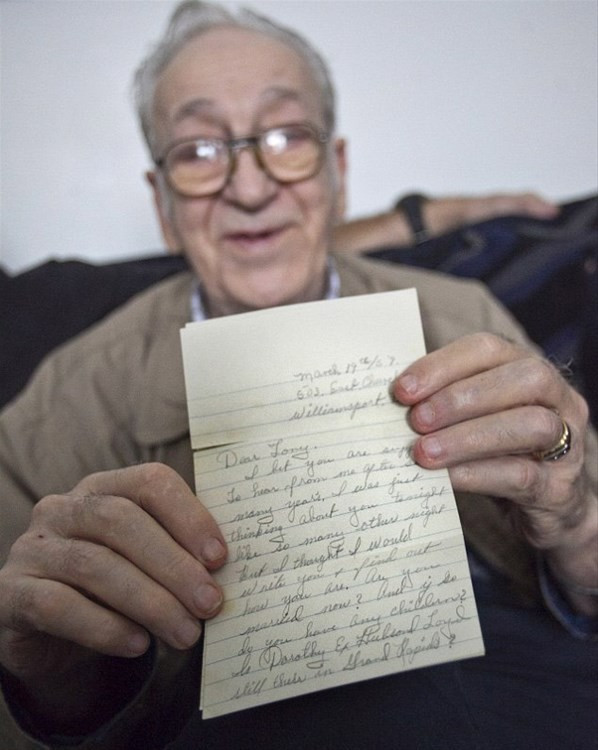 March 19th/57.
502. East Church
Williamsport.
Dear Tomy.
I bet you are
to hear from me after
many years. I was just
thinking about you tonight
like so many other night
But I thought I would
write you & find out
how you are. Are you
married now? And if so
do you have any children?
Is Dorothy Ex Husband Loyd
still there in Grand Rapids?